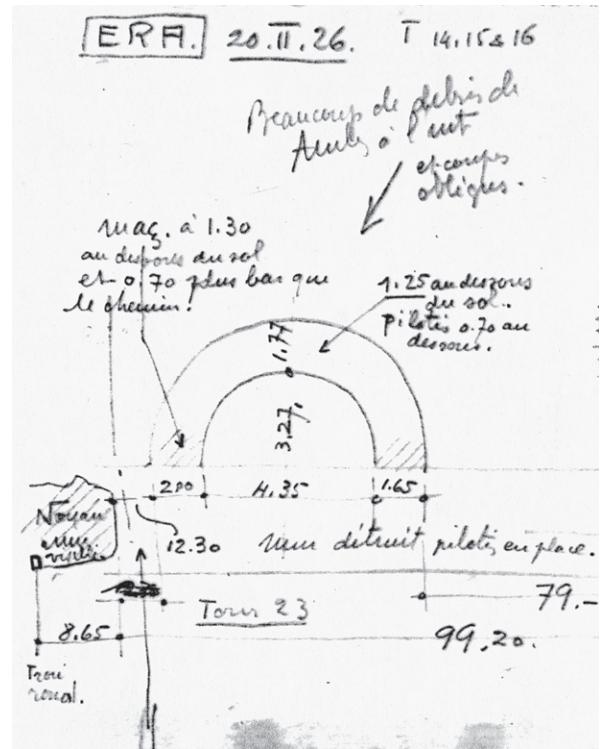 ERA. 20.II.26. T 14.15 & 16
Beaucoup de débris de
à l'int
et coupes
obliques.
Maç. à 1.30
au dessous du sol
et 0.70 plus bas que
le chemin!
1.25 au dessous
du sol.
pilotis 0.70 au
dessous.
1.77
3.27.
200 4.35 1.65
Noyau
mur
12.30 mur détruit pilotis en place.
Tour 23 79.-
8.65 99,20.
Trou
rond.